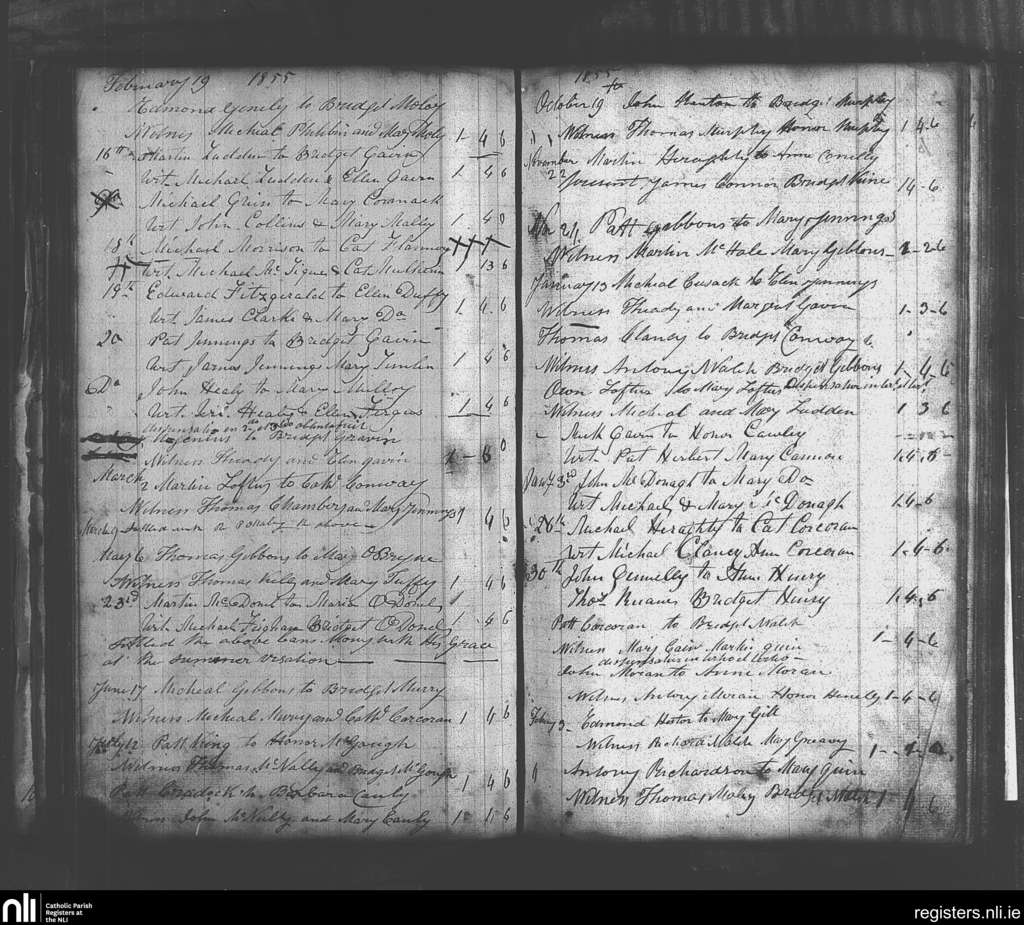 February 19 1855
Edmond Genely to Bridget Moloy
Witness Micheal Philibin and Mary Moloy 1 4 6
16th Martin Ludden to Bridget Gavin
Wit. Michael Ludden & Ellen Gavin 1. 4 6
Michael to Mary Cormack
Wit John Collins & Mary Malley 1. 4 0
18th Michael Morrison to Cat Flannery
Wit. Michael McTigue & Cat. 1 13 6
19th Edward Fitzgerald to Ellen Duffy
Wit. James Clarke & Mary Do 1. 4. 6
20 Pat Jennings to Bridget Gavin
Wit James Jennings Mary Tumlin 1 4 6
Do John Healy to Mary Mulloy
Wit. Healy & Ellen Fergus 1 4 6
dispensation in
to Bridget Gravin
Witness Thady and Elen gavin 1 - 6 0
March 2 Martin Loftus to Cath Conway
Witness Thomas Chambers and Mary Jennings 1 4 6
March 9 Settled with the above
May 6 Thomas Gibbons to Mary OBryne
Witness Thomas Kelly and Mary Tuffy 1 4 6
23rd Martin McDonel to Maria O Donel 1
Wit Michael Bridget O Donel 1. 4 6
Settled the above Bans Mony with His Grace
at the summer visation
June 17 Micheal Gibbons to Bridget Murry
Witness Micheal Murry and Cath Corcoran 1 4 6
July 12 Patt King to Honor McGough
Witness Thomas McNally and Bridget McGough 1 4 6
Patt Cradock to Barbara Cauly
Witnes John McNulty and Mary Cauly 1 - 1. 6
1855
October 19th John Horton to Bridget Murphy
Witness Thomas Murphy Honor Murphy 1 4. 6
November 22 Martin Heraghty to Anne Conelly
present. James Connor Bridget Kine 1 4 - 6
Nov 24 Patt gibbons to Mary Jennings
Witness Martin McHale Mary Gibbons - 1 - 2 6
January 13 Micheal Cusack to Elen Jennings
Witness Theady and Margret Gavin 1 - 3 - 6
Thomas Clancy to Bridget Conway
Witness Antony Walsh Bridget Gibbons 1 - 4 - 6
Own Loftus to Mary Loftus Dispensation in
Witness Micheal and Mary Ludden 1 3 6
Gavin to Honor Cawley
Wit. Pat Herbert Mary Cannon 1. 4. 6
Jany 3rd John McDonagh to Mary Do
Wit Michael & Mary McDonagh 1. 4 - 6
26th Michael Heraghty to Cat Corcoran
Wit Michael Clancy Ann Corcoran 1 - 4 - 6.
30th John Connelly to Ann Henry
Thos. Bridget Henry 1. 4. 6
Patt Corcoran to Bridget Walsh
Witness Mary Cain Martin quin 1 - 4 - 6
dispensation in
John Moran to Anne Moran
Witness Antony Moran Honor Henelly 1 - 4 - 6
Feby 3 Edmond Horton to Mary Gill
Witness Richard Walsh Mary Greavy 1 - 4 - 6
Antony Richardson to Mary quin
Witness Thomas Moloy Bridget Walsh 1 4 6
nli
Catholic Parish
Registers at
the NLI
registers.nli.ie